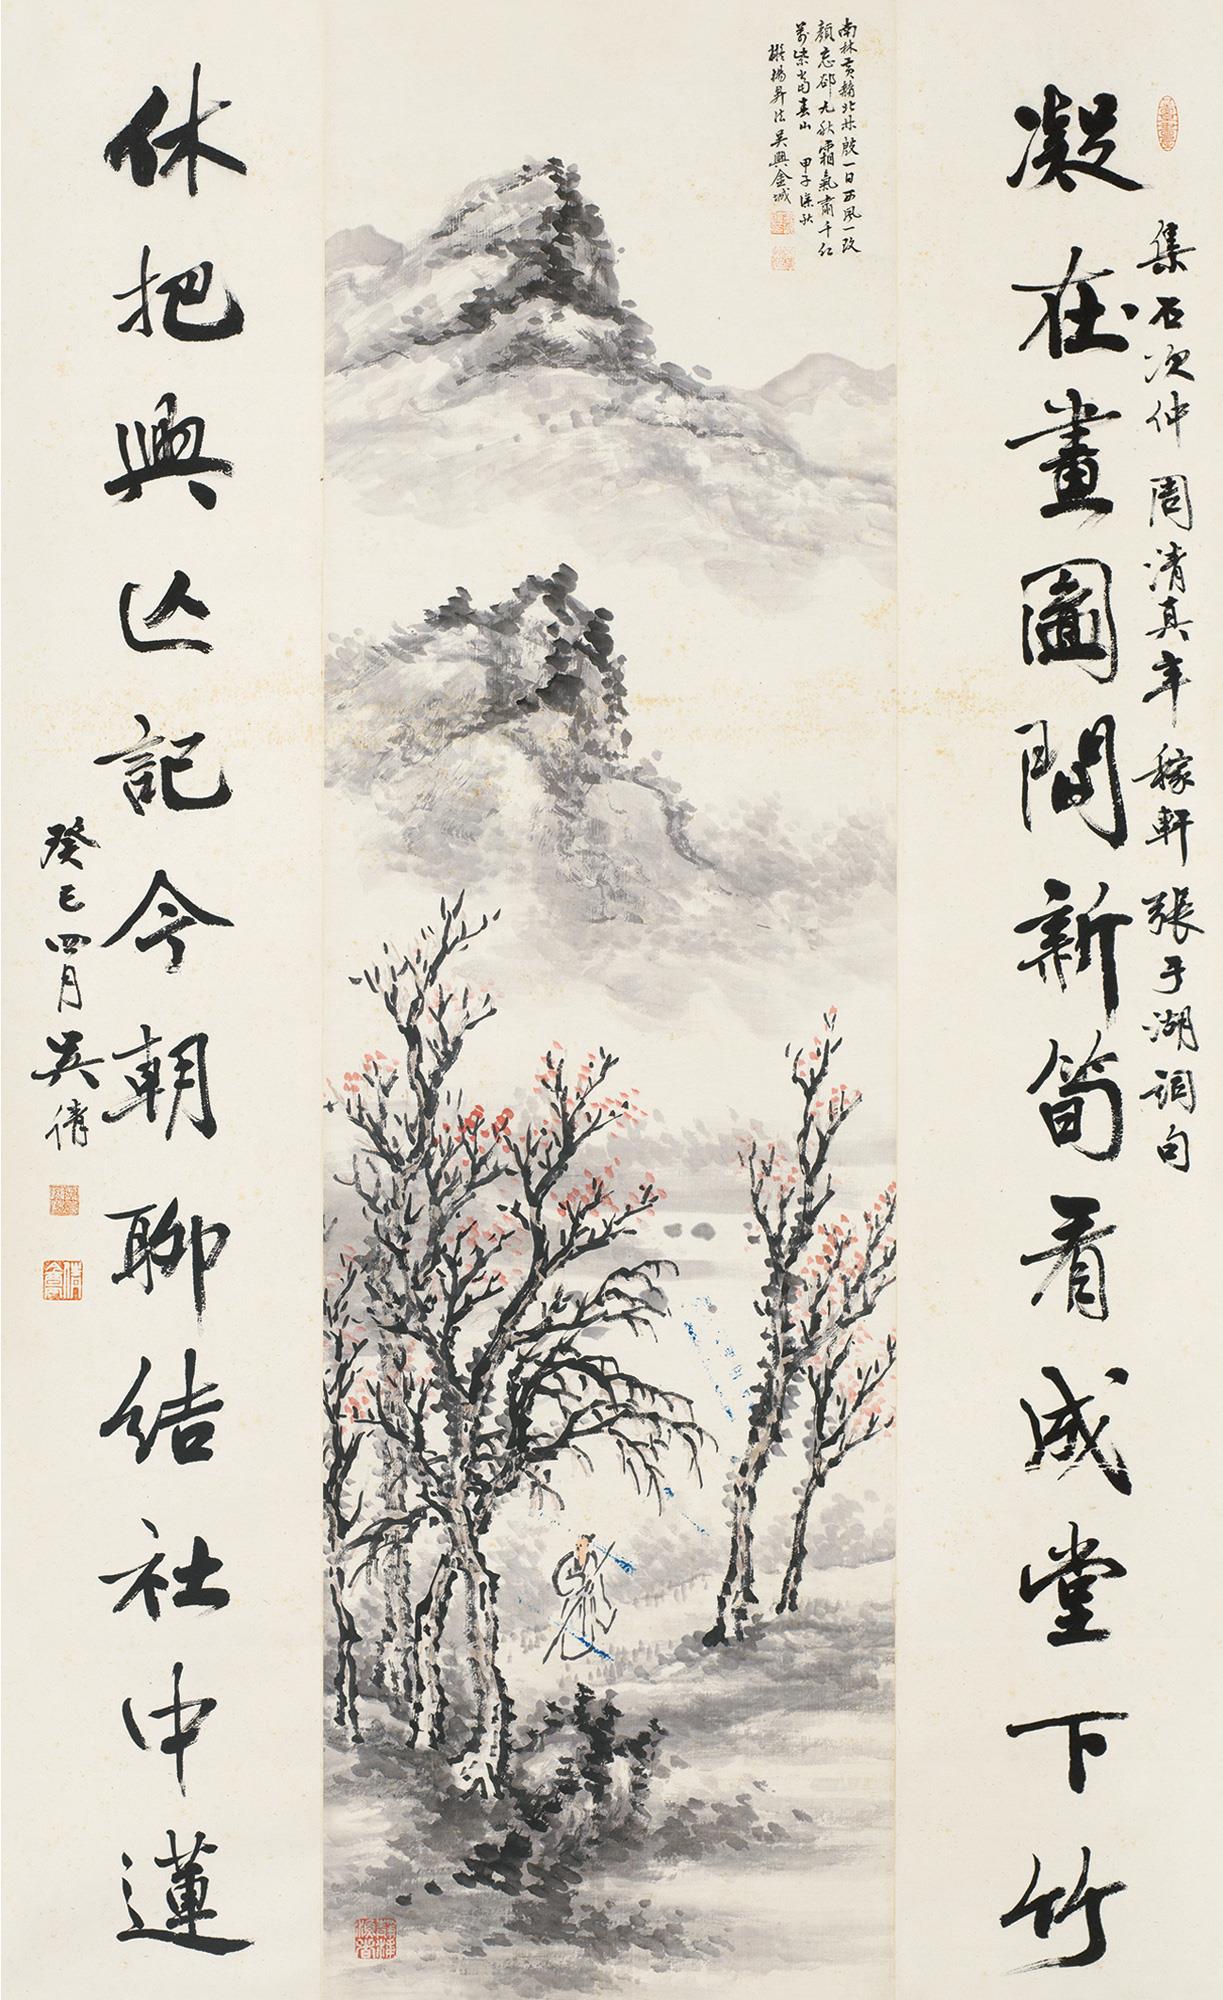 集石次仲周清真辛稼軒張于湖詞句
凝在畫圖間新筍看成堂下竹
南林黃赭北林殷一日西風一改
顏忘卻九秋霜氣肅千紅
萬紫當春山 甲子深秋
擬楊昇法吳興金城
休把興亡記今朝聊結社中蓮
癸巳四月吳倩